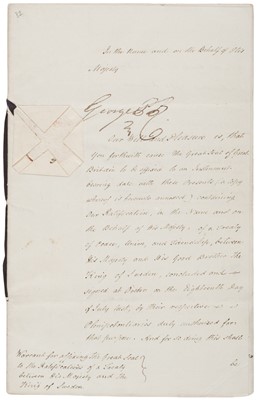 In the Name and on the Behalf of His
Majesty
George P R
Our Will and Pleasure is, that
You forthwith cause the Great Seal of Great
Britain to be affixed to an Instrument
bearing date with these Presents, a Copy
whereof is hereunto annexed, containing
Our Ratification, in the Name and on
the Behalf of His Majesty, of a Treaty
of Peace, Union, and Friendship, between
His Majesty and His Good Brother The
King of Sweden, concluded and
signed at Orebro on the Eighteenth Day
of July last, by Their respective
Plenipotentiaries duly authorised for
that purpose. And for so doing this shall
be
Warrant for affixing the Great Seal
to the Ratifications of a Treaty
between His Majesty and The
King of Sweden